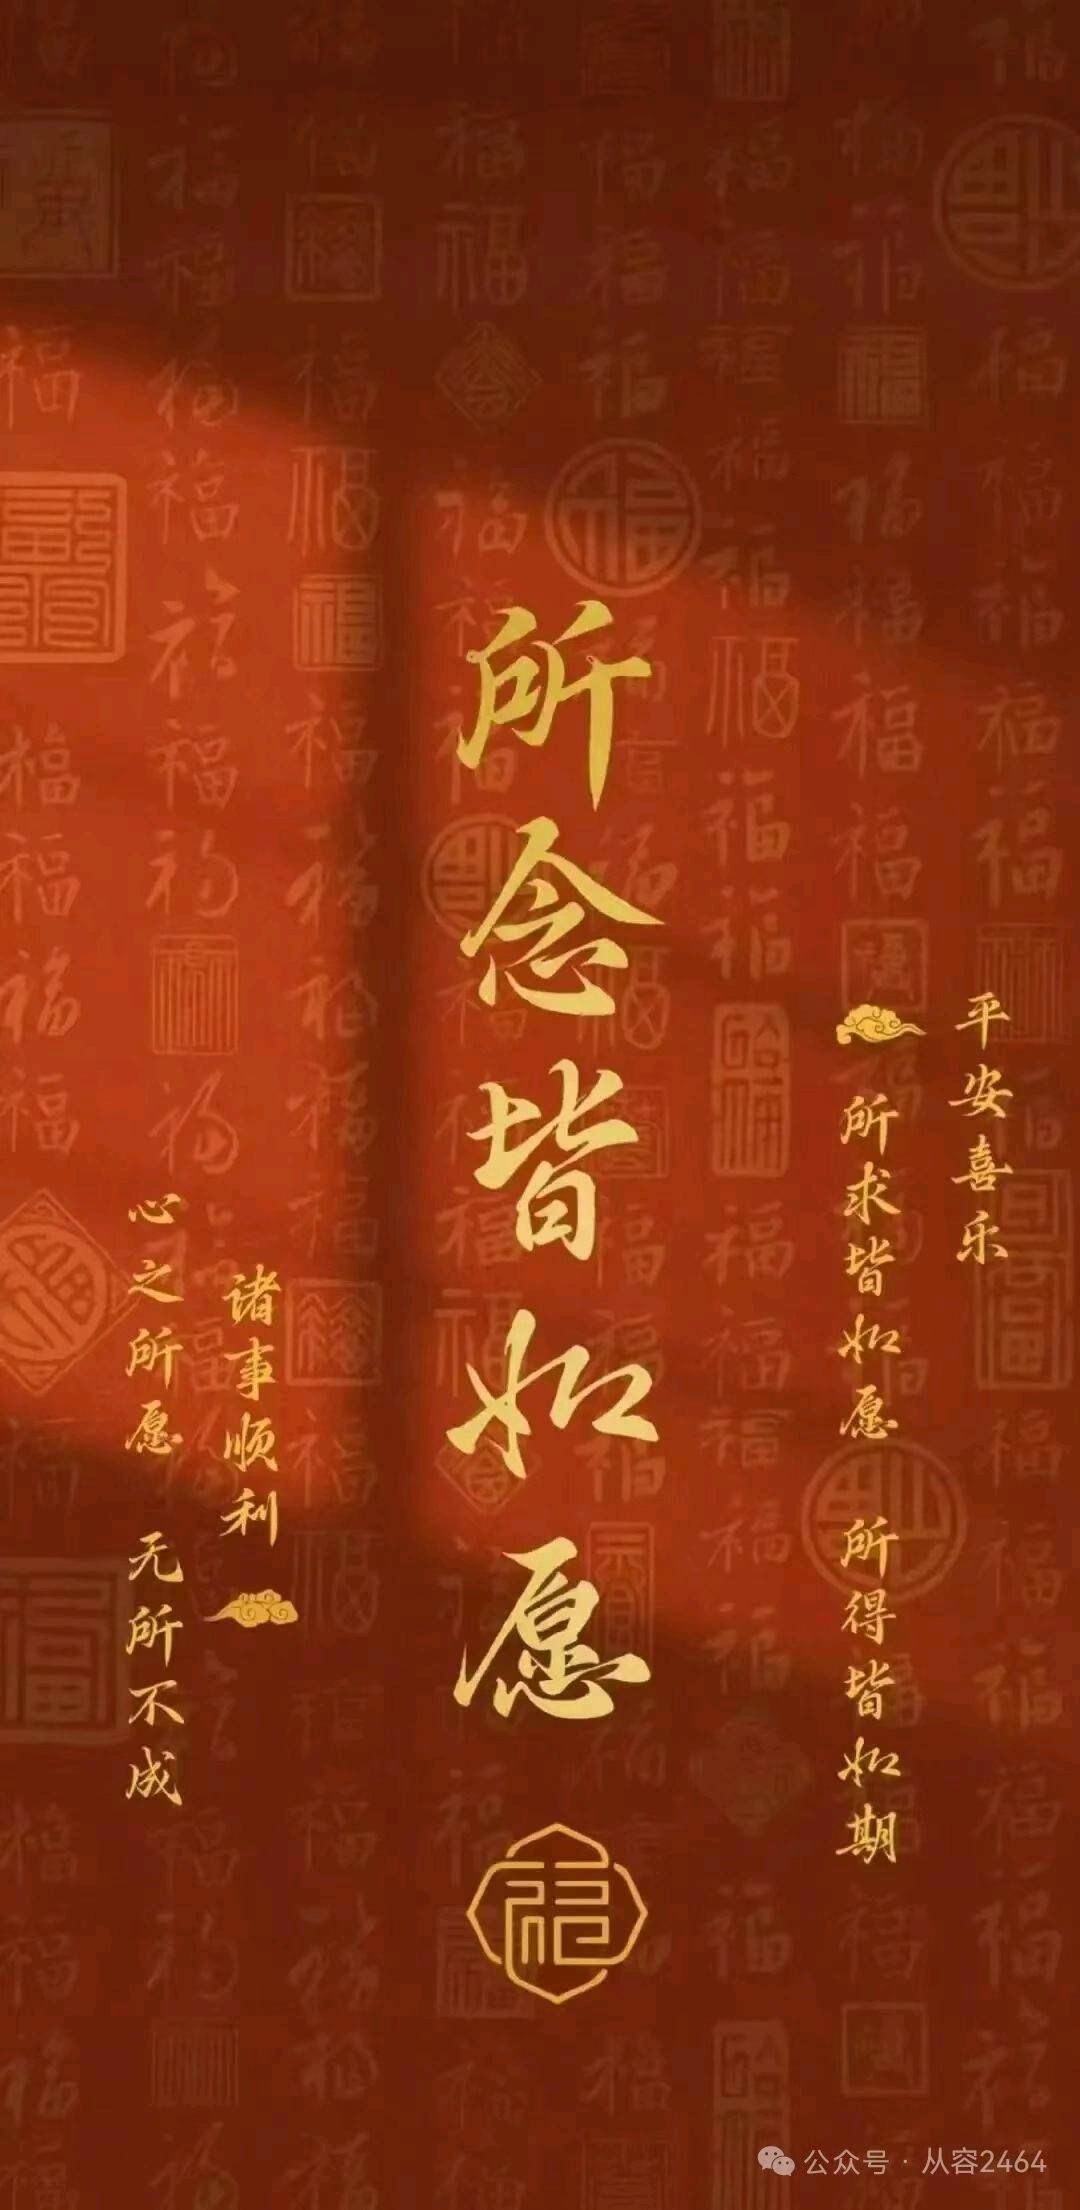 平安喜乐
所求皆如愿 所得皆如期
所念皆如愿
诸事顺利
心之所愿 无所不成
福
公众号 · 从容2464